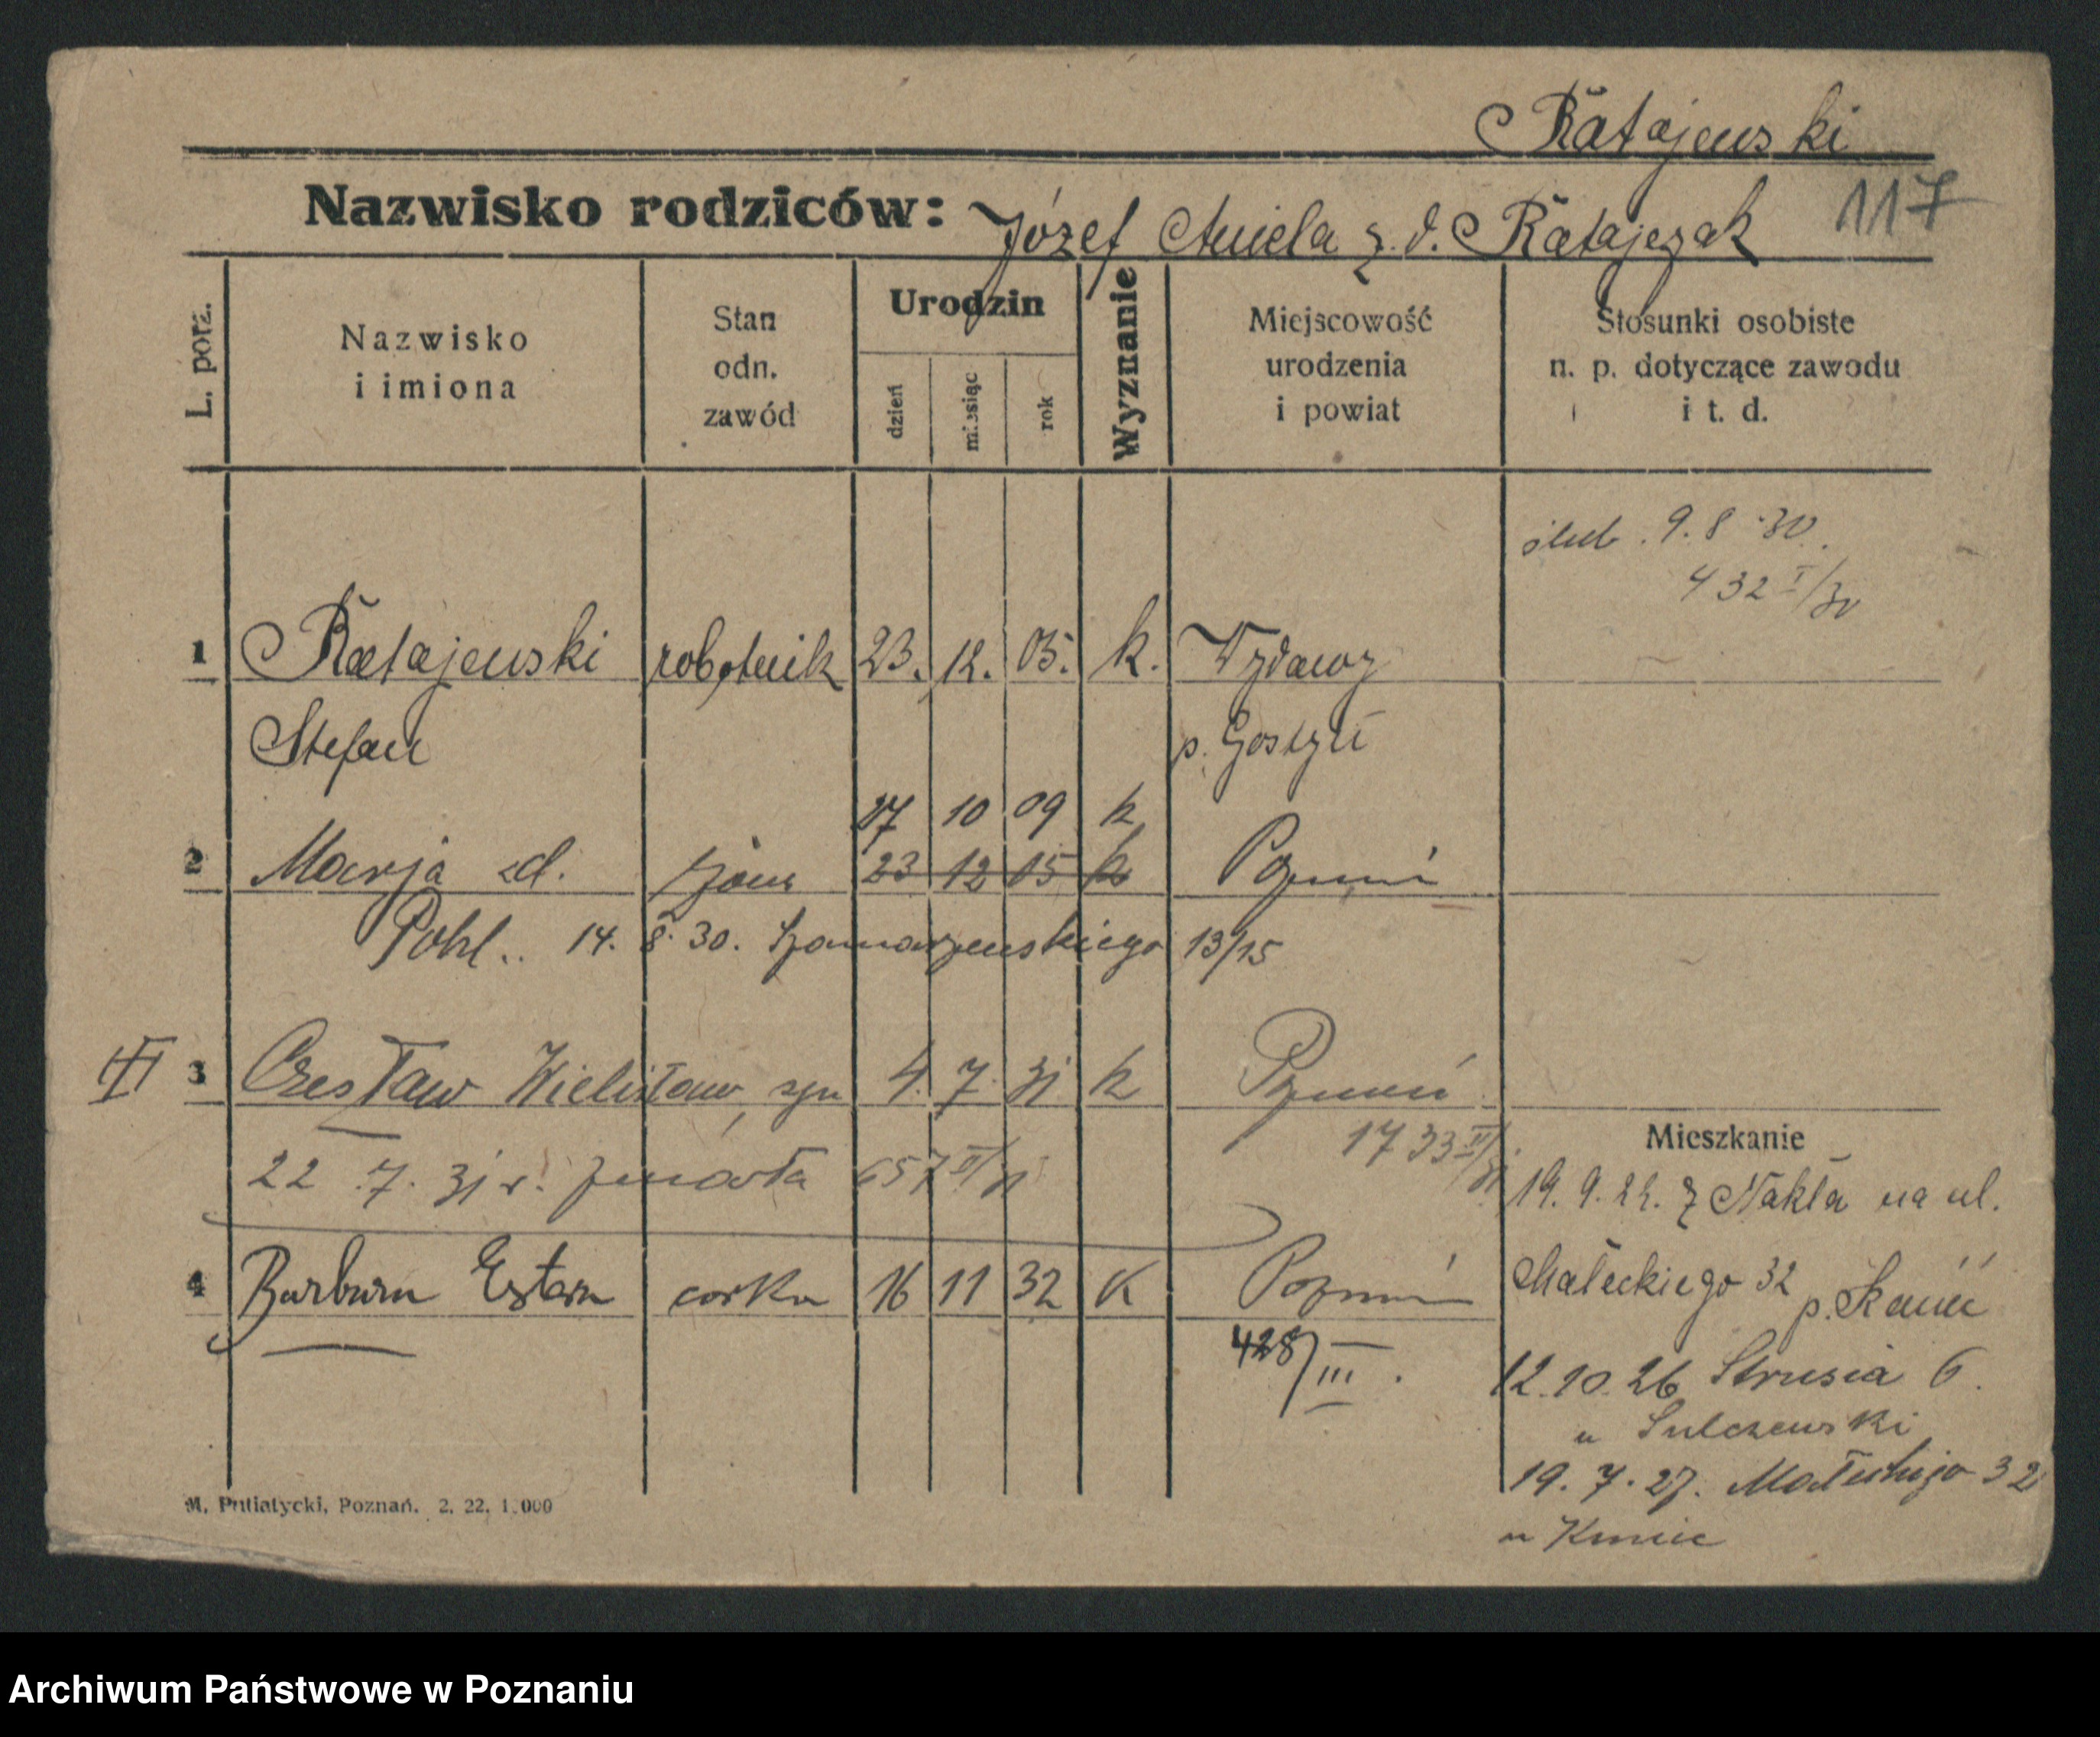 Ratajewski
Nazwisko rodziców: Józef Aniela z. d. Ratajczak 117
L. porz. Nazwisko i imiona Stan odn. zawód Urodzin dzień miesiąc rok Wyznanie Miejscowość urodzenia i powiat Stosunki osobiste n. p. dotyczące zawodu i t. d.
ślub. 9. 8 30.
432 I/30
1 Ratajewski robotnik 23. 12. 05. k. Wydawy
Stefan p. Gostyń
17 10 09 k
2 Marja zd. żona 23 12 05 k Poznań
Pohl.. 14. 8. 30. Szamarzewskiego 13/15
III 3 Czesław Wielisław syn 4. 7. 31 k Poznań
1733 II/31
22. 7. 31 r. 657 II/31
4 Barbara córka 16 11 32 K Poznań
428/III.
Mieszkanie
19. 9. 22. z Nakła na ul.
Małeckiego 32 p.
12. 10. 26 Strusia 6.
u Sulczewski
19. 7. 27. Małeckiego 32
u Kmiec
M. Putiatycki, Poznań. 2. 22. 1.000
Archiwum Państwowe w Poznaniu